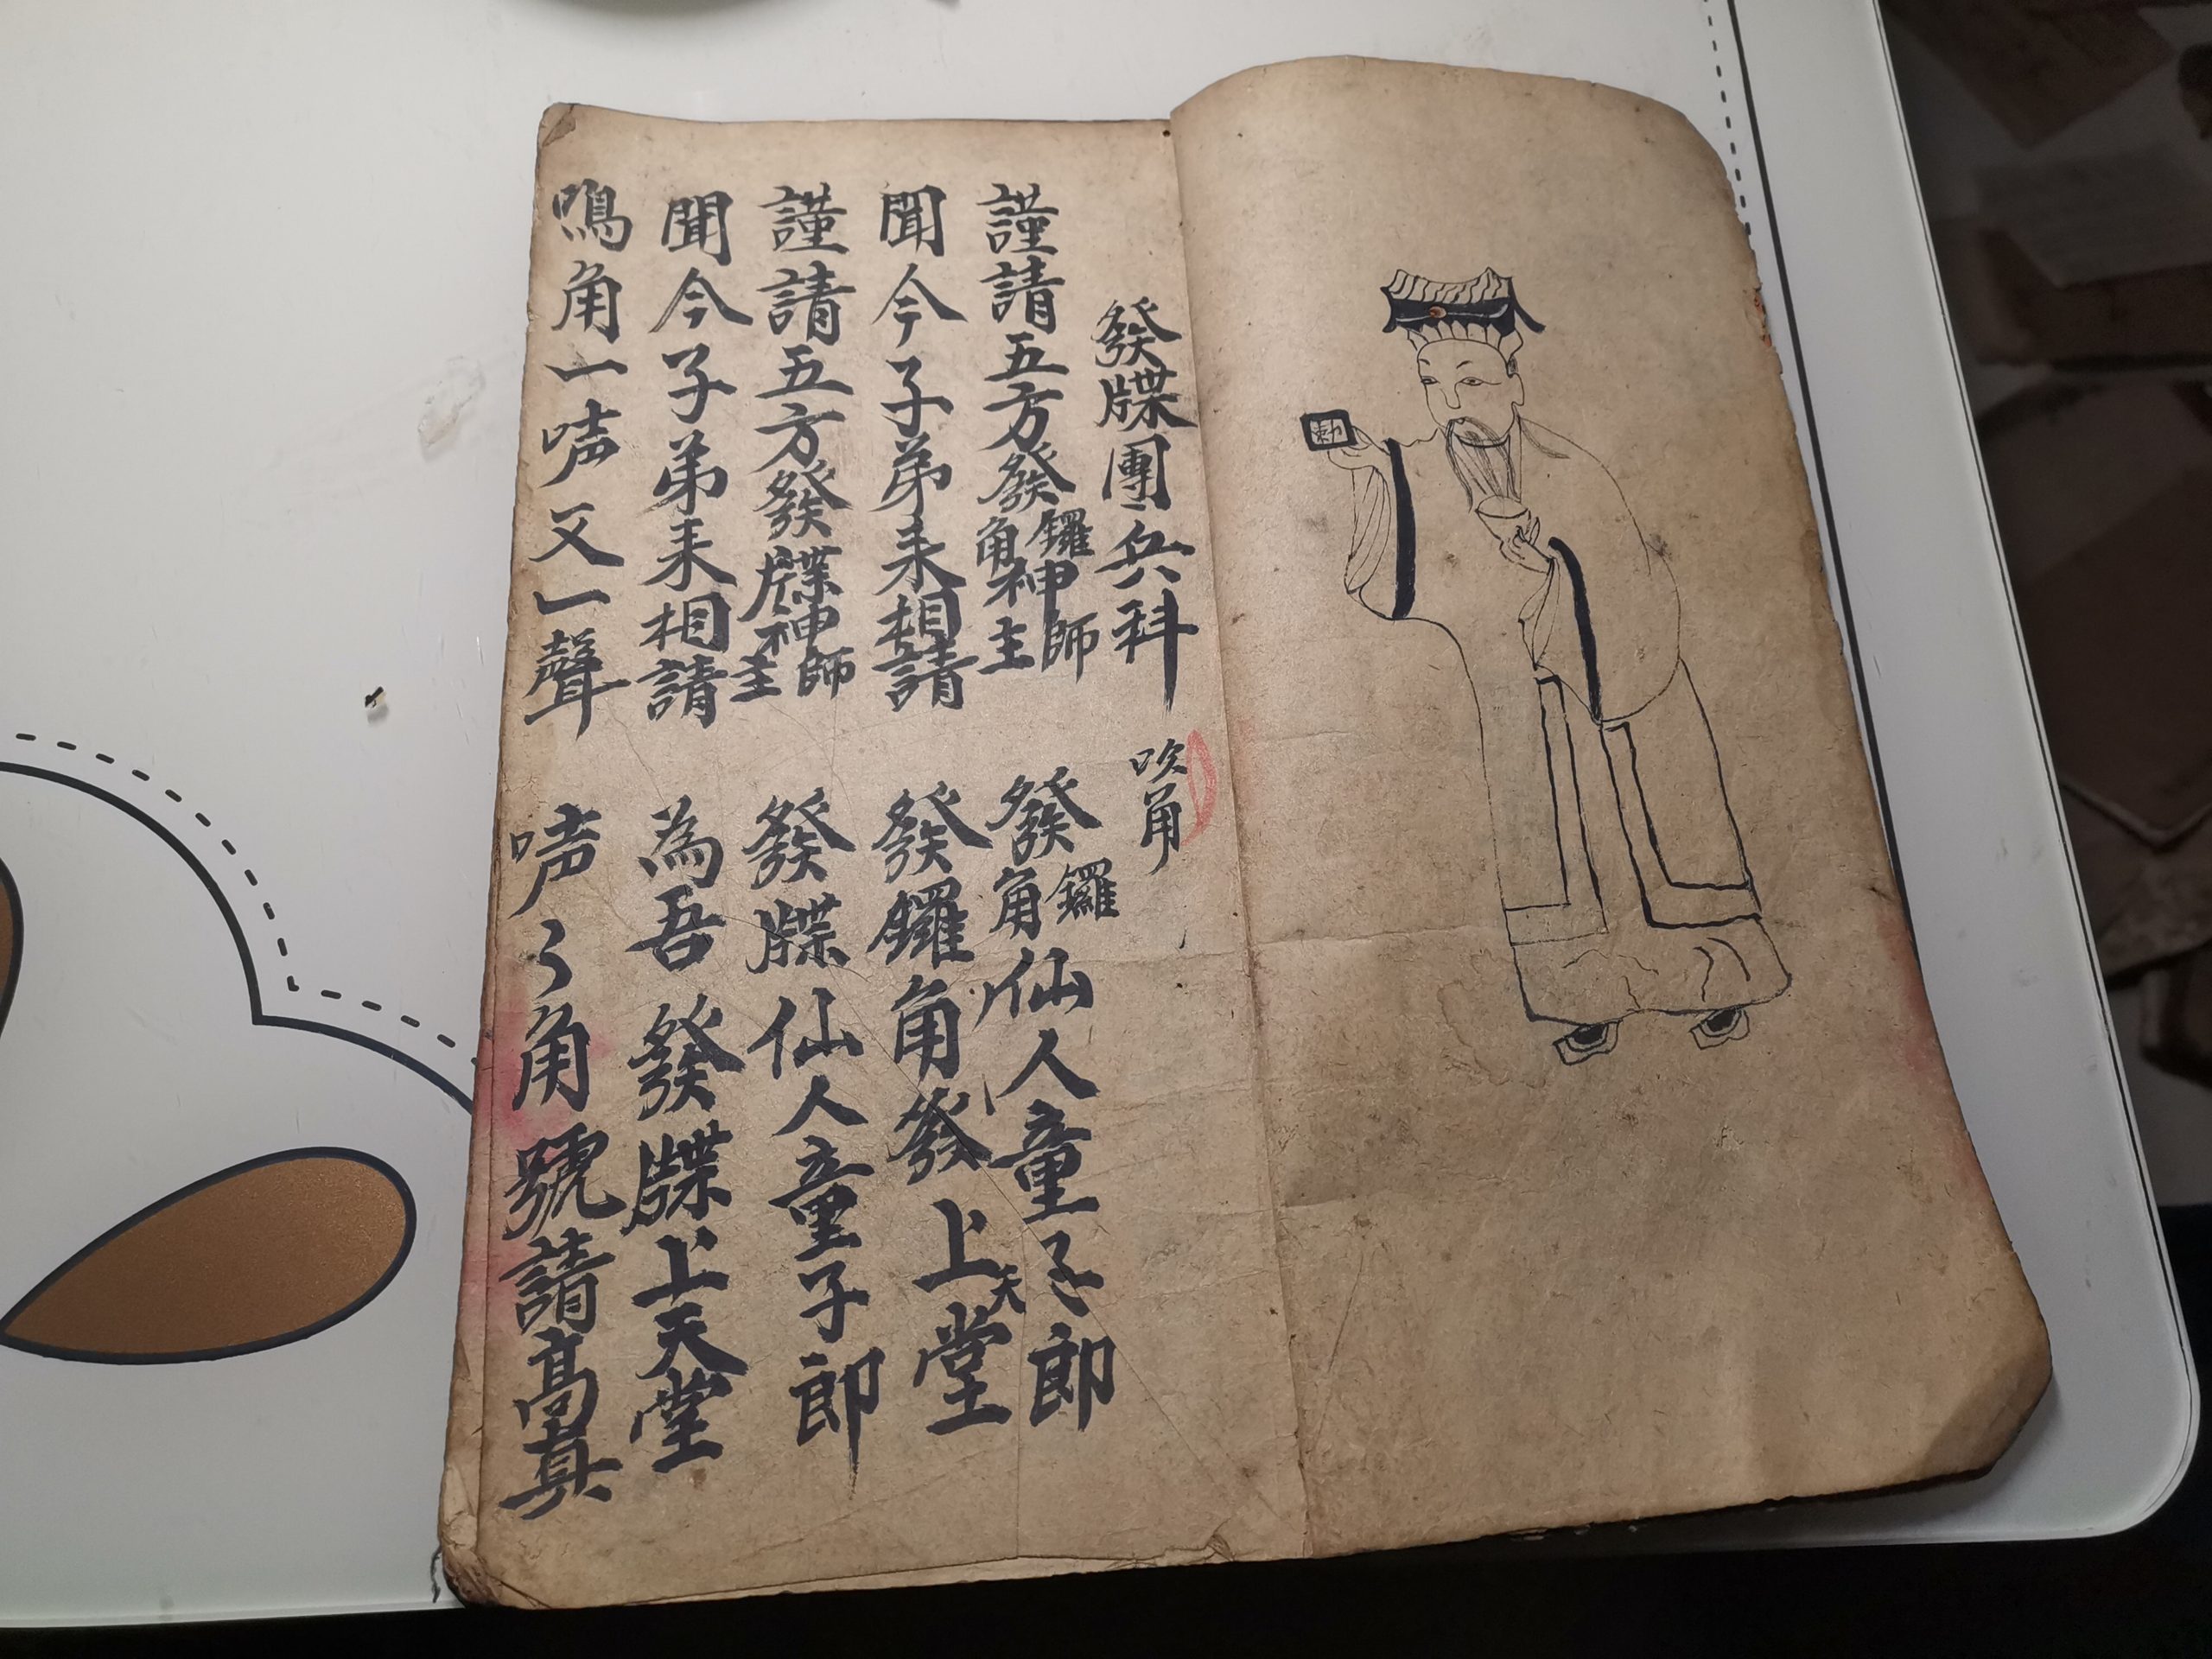 勅
發牒團兵科 吹角
謹請五方發鑼角神師主 發鑼角仙人童子郎
聞今子弟来相請 發鑼角發上天堂
謹請五方發牒神師主 發牒仙人童子郎
聞今子弟耒相請 為吾發牒上天堂
鳴角一唓又一聲 唓々角號請高真